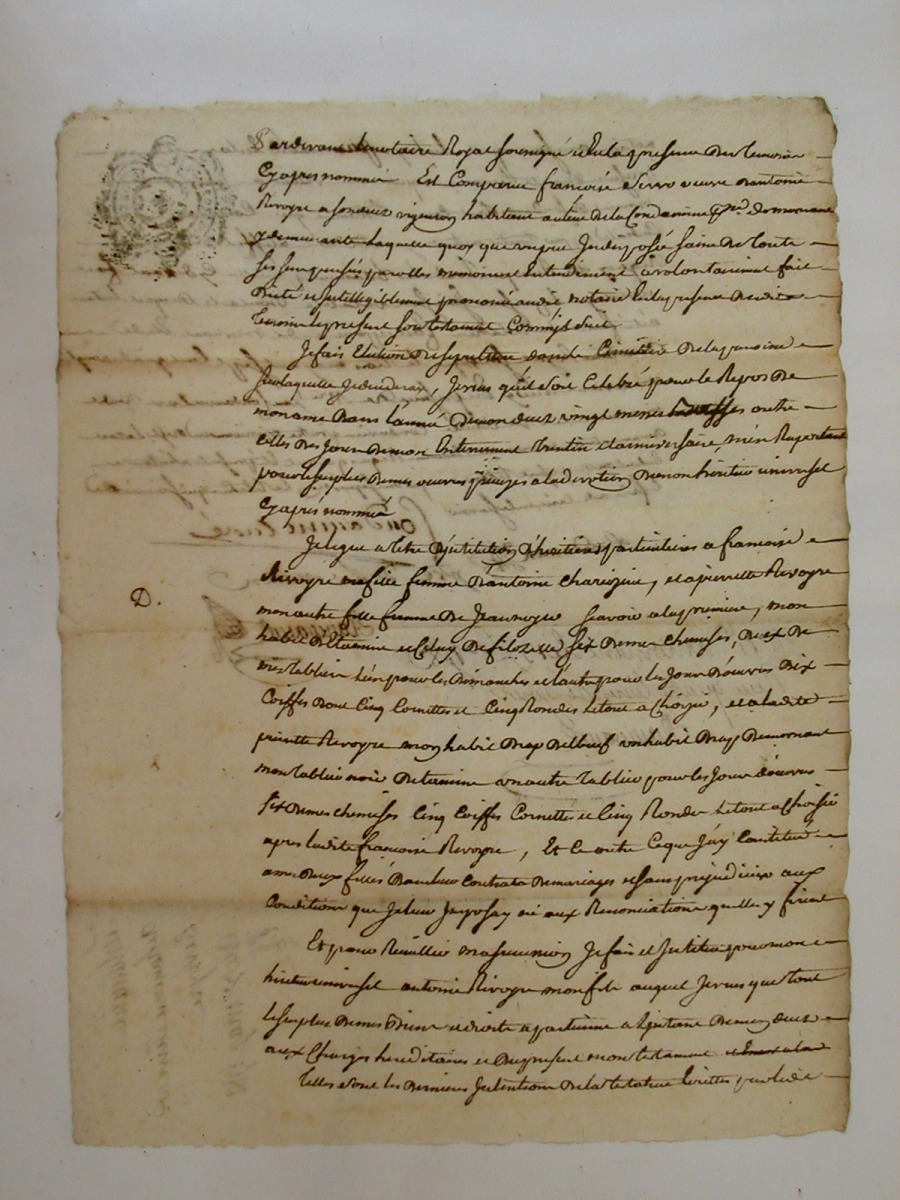 Pardevant le notaire Royal soussigné et En la presence Des temoins
Cy apres nommés Est Comparue françoise Serve veuve D'antoine
Rivoyre a son deceds vigneron habitant au lieu de la Condamine Psse. de mornant
y demeurante Laquelle quoy que indisposée saine De toute
Ses sens pensés parolles memoire et Entendement a volontairement fait
Dicté et intelligiblement prononcé audit notaire En la presence Desdits
temoins le present son testament Comm'il suit
Je fais Election De sepulture dans le Cimetière De la paroisse
sur laquelle je decederay, Je veux qu'il soit Celebré pour le Repos De
mon ame Dans l'année De mon deceds vingt messes basses outre
celles Des jours De mon Enterrement Trentin et anniversaire, m'en Raportant
pour le surplus De mes œuvres pieuses a la devotion De mon heritier universel
Cy apres nommé
Je legue a titre D'institution D'heritieres particulieres a françoise
Rivoyre ma fille femme D'antoine , et a pierrette Rivoyre
D.
mon autre fille femme De Jean savoir a la premiere, mon
habit D'Etamine et Celuy De filozelle six De mes chemises, Deux De
mes tabliers l'un pour les Dimanches et l'autre pour les jours D'œuvres Dix
Coiffes Dont Cinq Cornettes et Cinq Rondes le tout a Choisir, et a ladite
pierrette Rivoyre mon habit Drap D'elbeuf un habit Drap De mornant
mon tablier noir D'etamine un autre tablier pour les jours d'œuvres
six De mes chemises Cinq Coiffes Cornettes et Cinq Rondes le tout a Choisir
apres ladite françoise Rivoyre, Et Ce outre Ce que J'ay Constitué
a mes Deux filles Dans leur Contrats De mariages et sans prejudicier aux
Conditions que Je leur Imposay ni aux Renonciations qu'elles y firent
Et pour Recueillir ma succession Je fais et Institue pour mon
heritier universel antoine Rivoyre mon fils auquel Je veux que tout
le surplus De mes Biens et droits apartienne a De mon deceds
aux Charges hereditaires et Du present mon testament
Telles sont les Dernieres Intentions De la testatrice Ecrittes par ledit